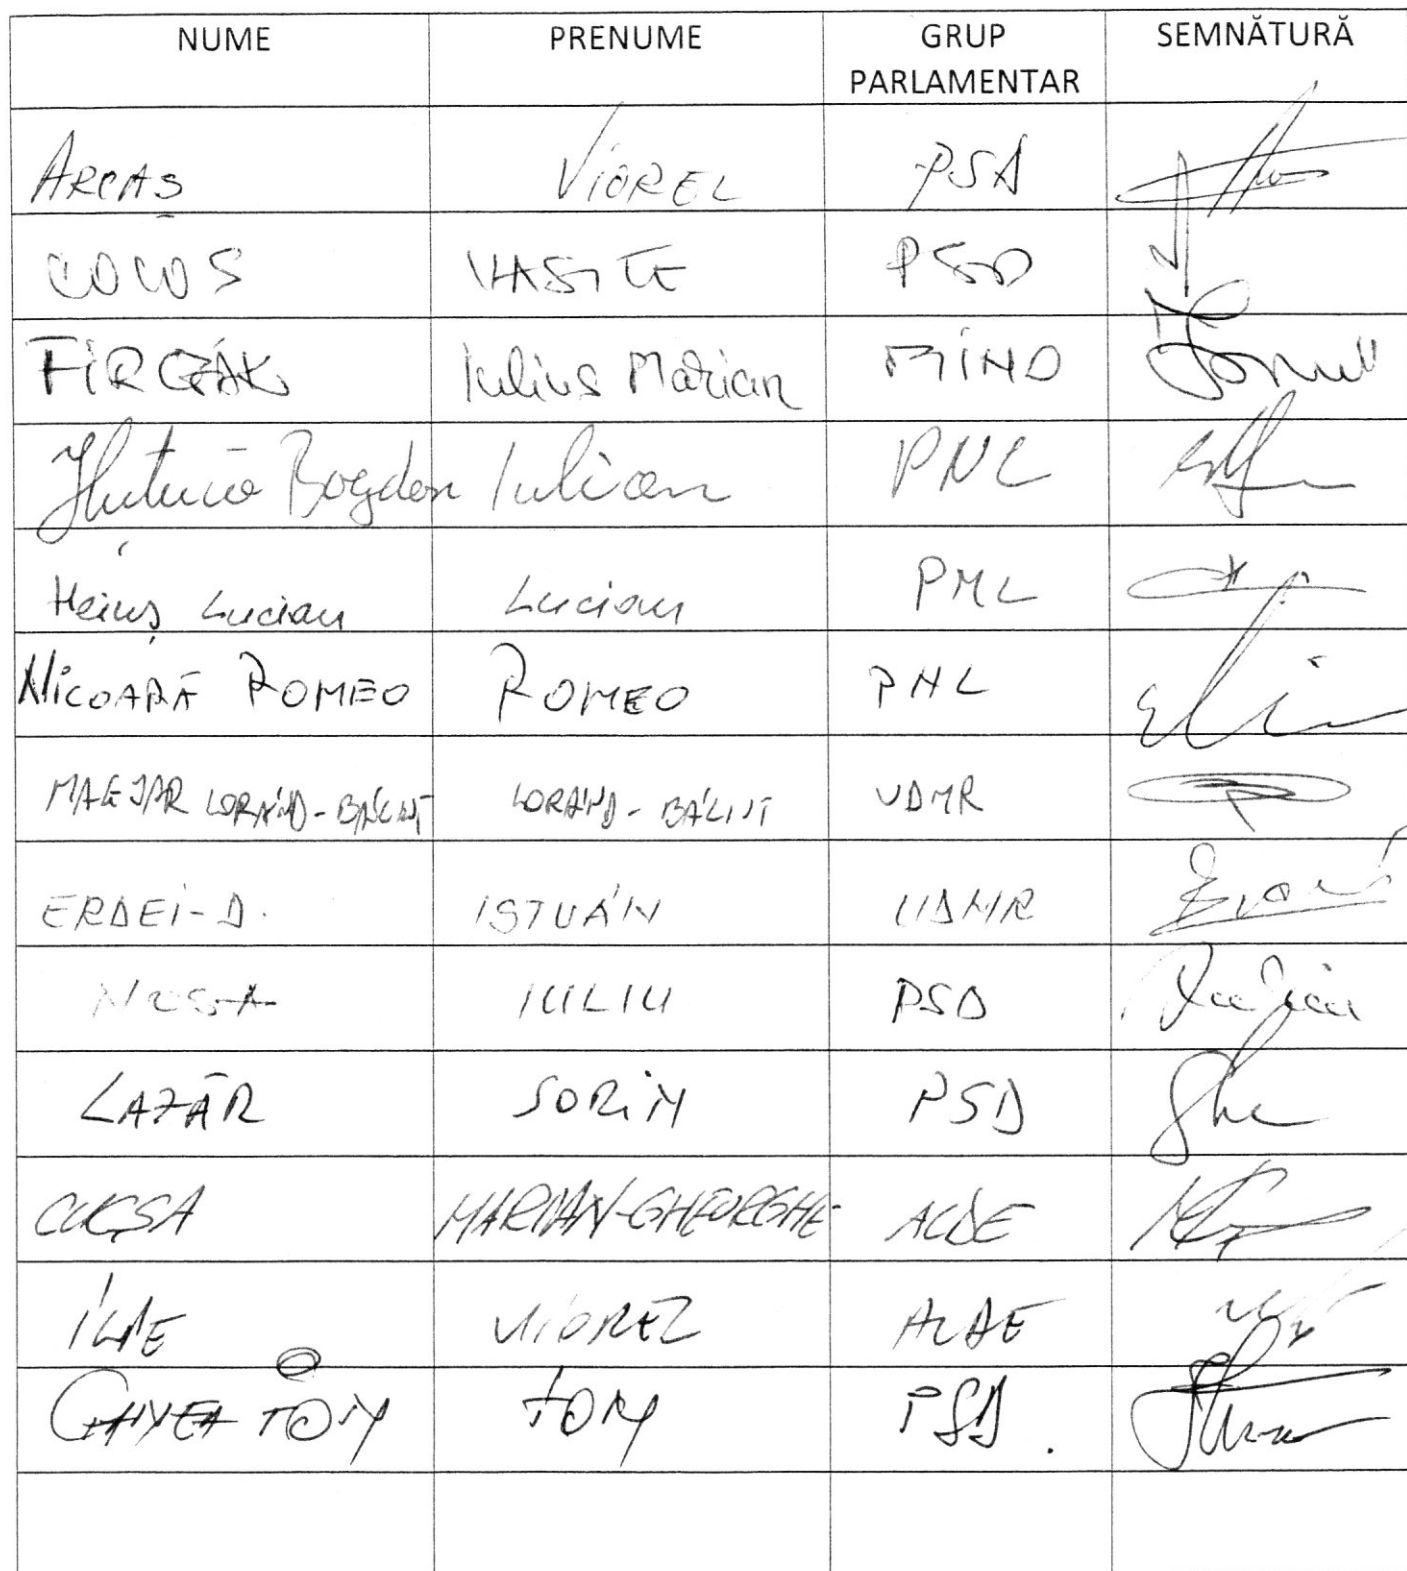 NUME PRENUME GRUP PARLAMENTAR SEMNĂTURĂ
ARCAȘ VIOREL PSD
COCOȘ VASILE PSD
FIRCZÁK Iulius Marian MIND
Huțucă Bogdan Iulian PNL
Heiuș Lucian Lucian PNL
NICOARĂ ROMEO ROMEO PNL
MAGYAR LORÁND-BÁLINT LORÁND-BÁLINT UDMR
ERDEI-D. ISTVÁN UDMR
NOSA IULIU PSD
LAZĂR SORIN PSD
CUCȘA MARIAN-GHEORGHE ALDE
ILIE VIOREL ALDE
TONY TONY PSD.